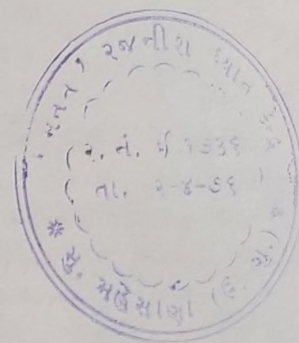 રજનીશ ધ્યાન કેન્દ્ર
(ર. નં. ઈ ૧૩૩૬
તા. ૨-૪-૭૬ )
* મુ. મહેસાણા (ઉ. ગુ.) *